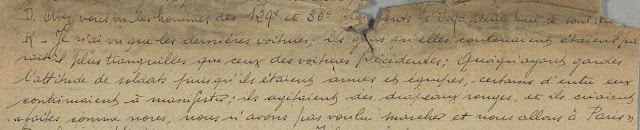 D. Avez vous vu les hommes des 129e et 36e se sont
R - Je n'ai vu que les dernières voitures; ils gens qu'elles contenaient étaient
plus tranquilles que ceux des voitures précédentes; Quoiqu'ayant gardés
l'attitude de soldats puisqu'ils étaient armés et équipés, certains d'entre eux
continuaient à manifester; ils agitaient des drapeaux rouges, et ils criaient
faites comme nous, nous n'avons pas voulu marcher et nous allons à Paris »